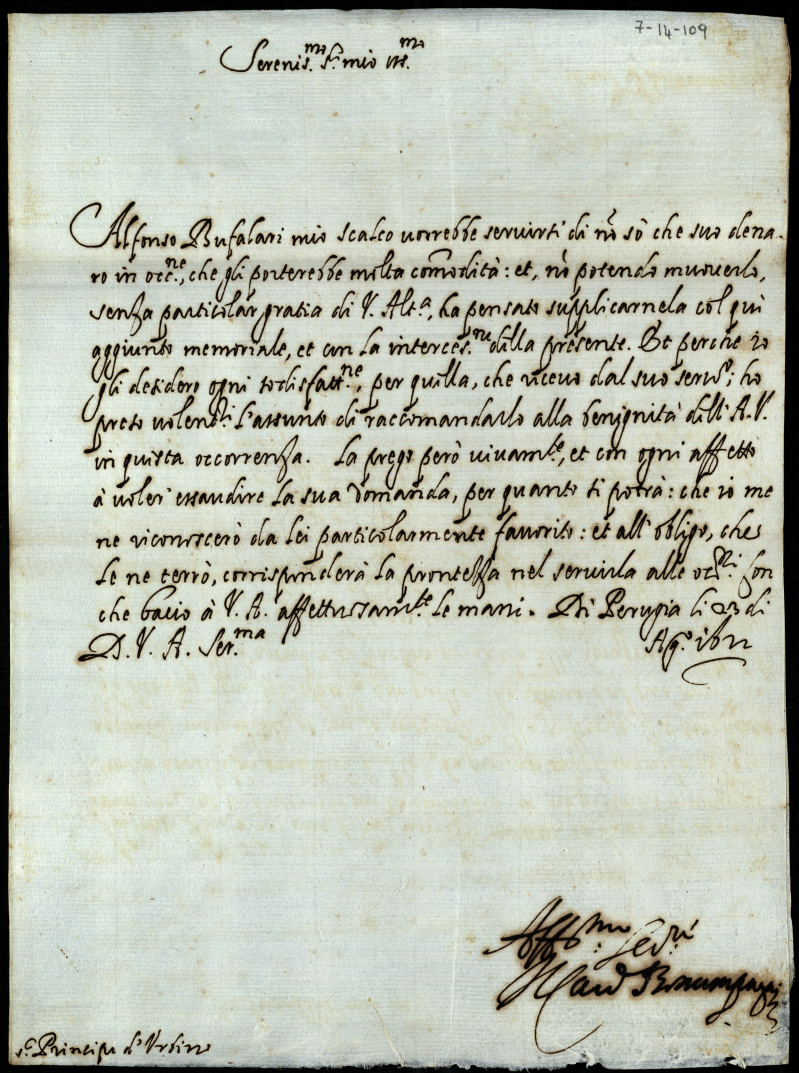 7-14-109
Serenis.mo S.r mio oss.mo
Alfonso Bufalari mio scalco vorrebbe servirsi di nō sò che suo dena-
ro in occ.ne, che gli porterebbe molta com̄odità: et, nō potendo muoverlo,
senza particolar gratia di V. Alt.a, ha pensato supplicarnela col qui
aggiunto memoriale, et con la interces.ne della presente. Et perche io
gli desidero ogni sodisfatt.ne, per quella, che ricevo dal suo serv.o; ho
preso volent.ri l'assunto di raccomandarlo alla benignità dell'A.V.
in questa occorrenza. La prego però vivam.te, et con ogni affetto
à voler essaudire la sua domanda, per quanto si potrà: che io me
ne riconoscerò da lei particolarmente favorito: et all'obligo, che
le ne terrò, corrisponderà la prontezza nel servirla alle occ.ni. Con
che bacio à V. A. affettuosam.te le mani. Di Perugia li 23 di
D. V. A. Ser.ma Ag.o 1622
Aff.mo Ser.re
Il Card Boncompagni
S.r Principe d'Urbino